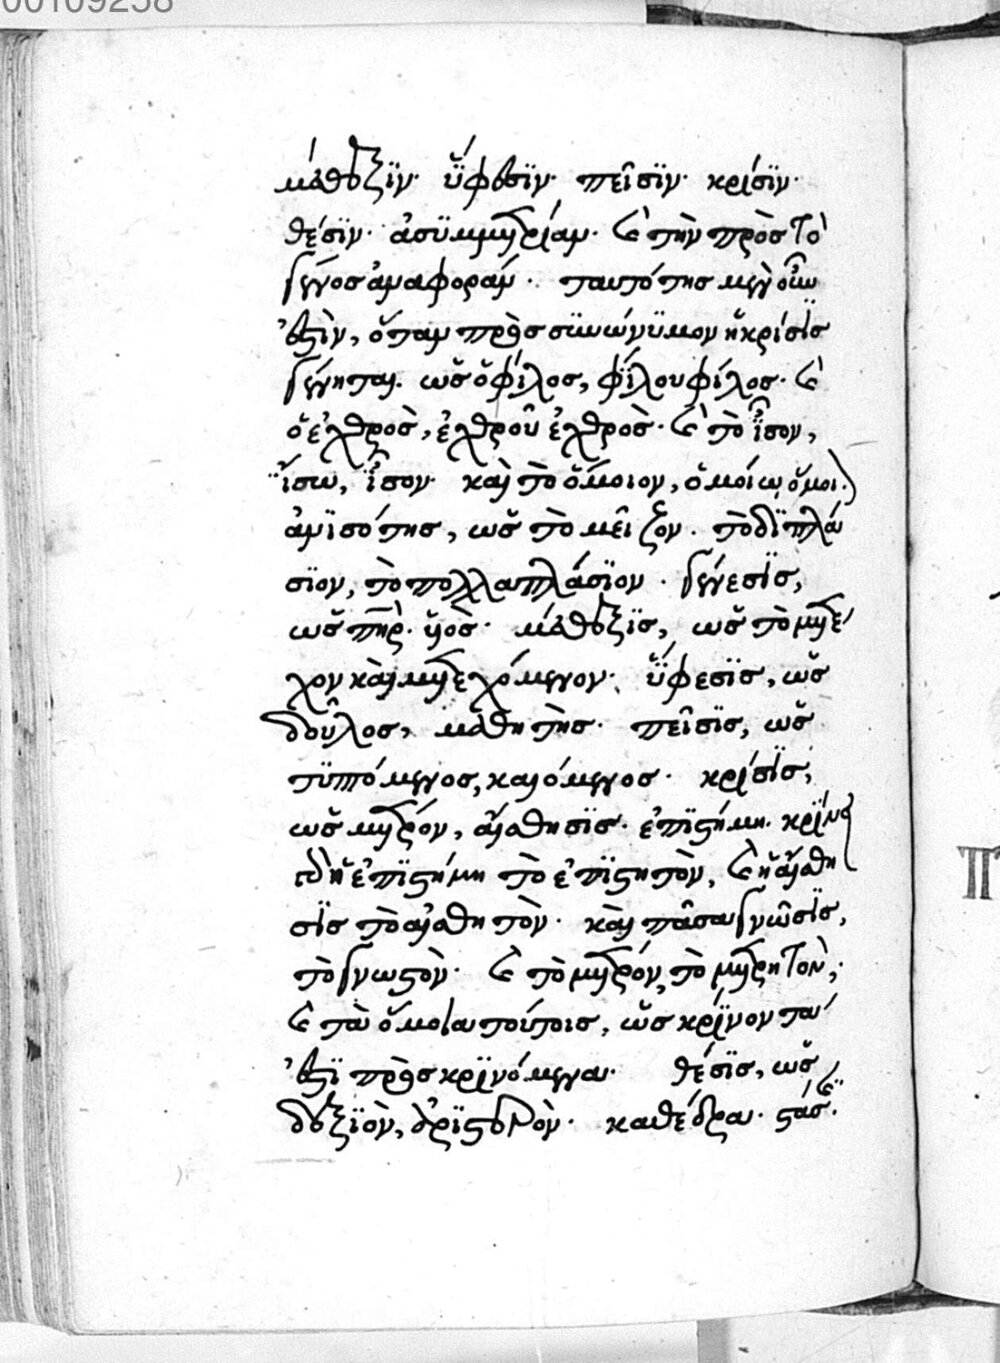 00109258
μέθεξϊν· ὕφεσϊν· πεῖσϊν· κρίσϊν·
θέσϊν· ἀσϋμμετρίαν· καὶ τὴν πρὸς τὸ
γένος ἀναφοράν· ταυτότης μὲν οὖν
ἐστὶν, ὅταν πρὸς συνώνϋμον ἡ κρίσϊς
γένηται. ὡς ὁ φίλος, φίλου φίλος· καὶ
ὁ ἐχθρὸς, ἐχθροῦ ἐχθρὸς· καὶ τὸ ἴσον,
ἴσω, ἴσον· καὶ τὸ ὅμοιον, ὁμοίω ὅμοι.
ἀνϊσότης, ὡς τὸ μεῖζον. τὸ διπλά
σϊον, τὸ πολλαπλάσϊον. γένεσϊς,
ὡς πηρ· υἱὸς· μέθεξϊς, ὡς τὸ μετέ
χον καὶ μετεχόμενον· ὕφεσϊς, ὡς
δοῦλος, μαθητὴς· πεῖσϊς, ὡς
τϋπτόμενος, καιόμενος· κρίσϊς,
ὡς μέτρον, αἴσθησϊς· ἐπϊστήμη. κρίνει
δὲ ἡ ἐπϊστήμη τὸ ἐπϊστητὸν, καὶ ἡ αἴσθη
σϊς τὸ αἰσθητὸν· καὶ πᾶσα γνῶσϊς,
τὸ γνωστὸν· καὶ τὸ μέτρον, τὸ μετρητὸν,
καὶ τὰ ὅμοια τούτοις, ὡς κρίνοντα
ἐστὶ πρὸς κρϊνόμενα· θέσϊς, ὡς
δεξϊὸν, ἀρϊστερὸν· καθέδρα· στάσ.